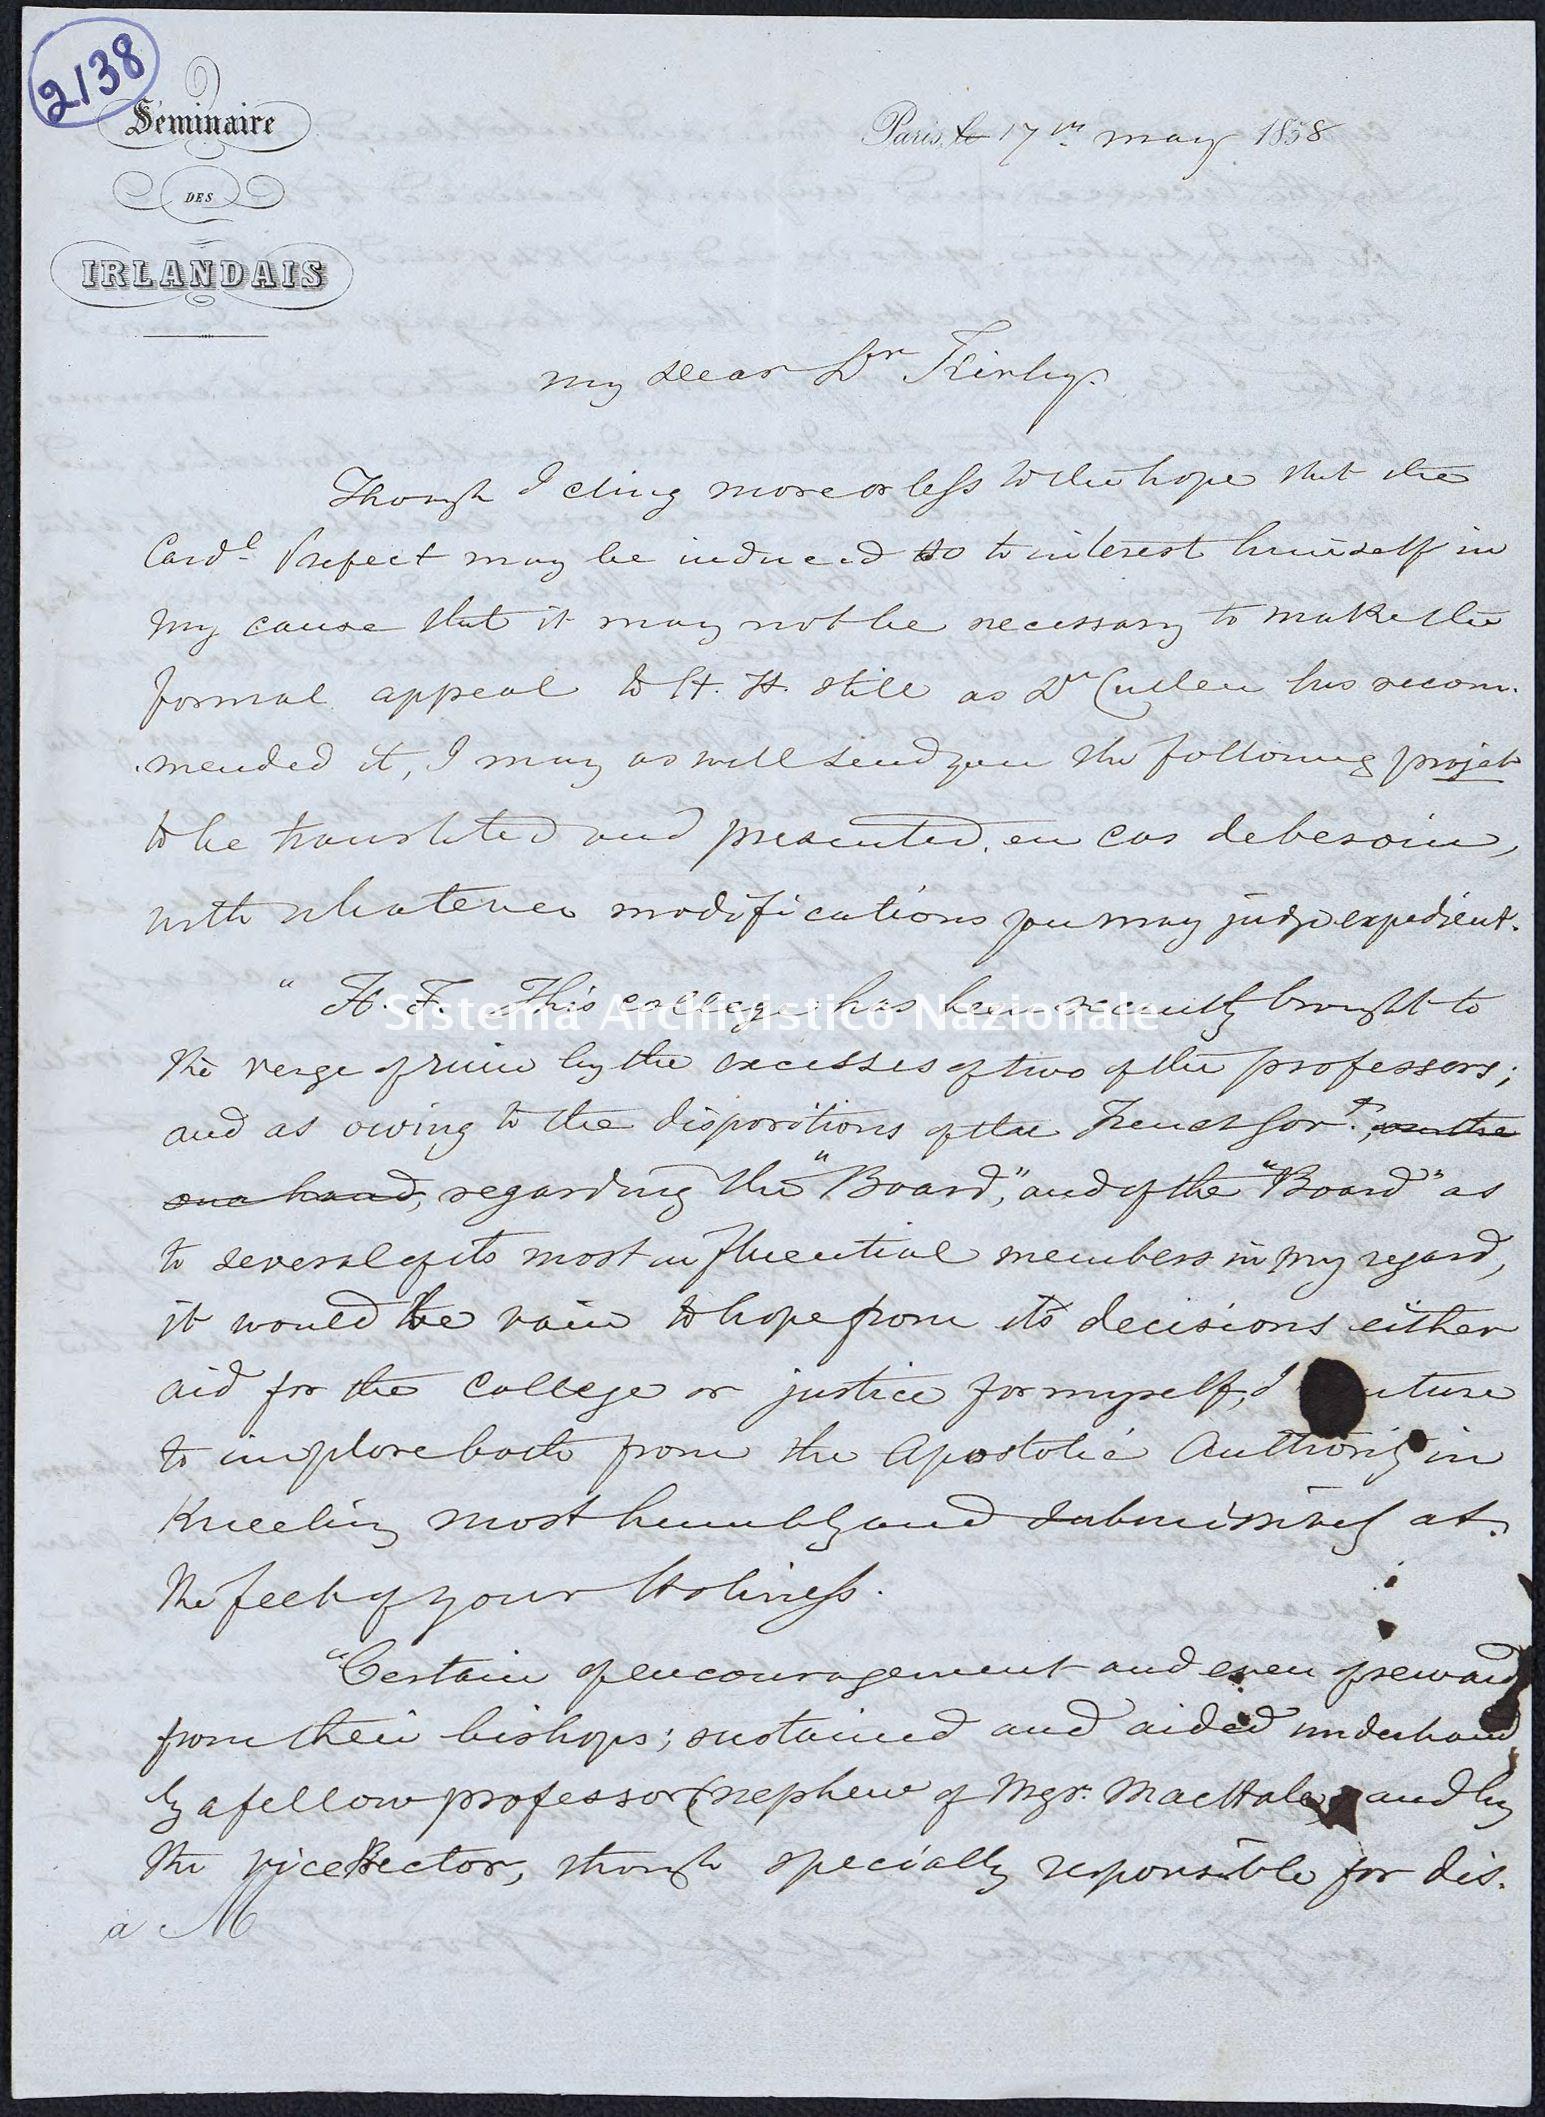 2138
Séminaire
DES
IRLANDAIS
Paris, le 17th may 1858
My dear Dr Kirby.
Though I cling more or less to the hope that the
Cardl. Prefect may be induced so to interest himself in
my cause that it may not be necessary to make the
formal appeal to H. H. still as Dr Cullen has recom-
-mended it, I may as well send you the following projet
to be translated and presented, en cas de besoin,
with whatever modifications you may judge expedient.
"H. F. This college has been recently brought to
the verge of ruin by the excesses of two of the professors;
and as owing to the dispositions of the French Govt., on the
one hand, regarding the "Board," and of the "Board" as
to several of its most influential members in my regard,
it would be vain to hope from its decisions either
aid for the college or justice for myself, I uture
to implore both from the Apostolic Authority in
Kneeling most humbly and submissively at
the feet of your Holiness.
"Certain of encouragement and even of reward
from their bishops; sustained and aided underhand
by a fellow professor (nephew of Mgr. MacHale) and by
the vice Rector, though specially responsible for dis-
a M
Sistema Archivistico Nazionale